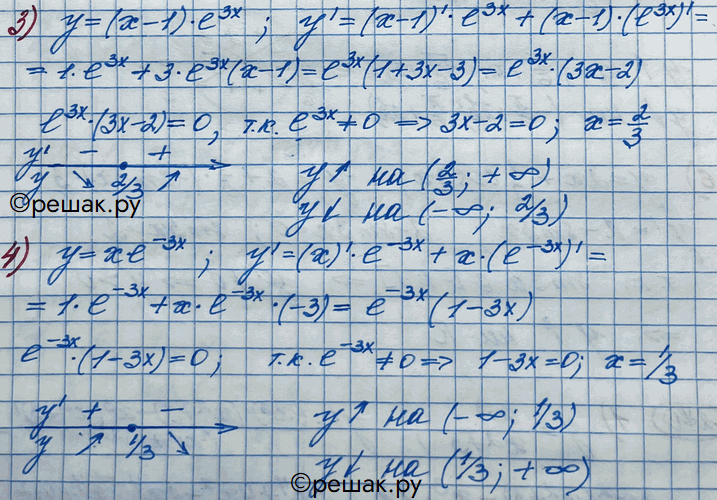 3) y=(x-1)·e^{3x} ; y'=(x-1)'·e^{3x}+(x-1)·(e^{3x})'=
=1·e^{3x}+3·e^{3x}(x-1)=e^{3x}(1+3x-3)=e^{3x}·(3x-2)
e^{3x}·(3x-2)=0, т.к. e^{3x}≠0 => 3x-2=0; x=2/3
y' - +
y ↘ 2/3 ↗
y↑ на (2/3; +∞)
©решак.ру
y↓ на (-∞; 2/3)
4) y=xe^{-3x} ; y'=(x)'·e^{-3x}+x·(e^{-3x})'=
=1·e^{-3x}+x·e^{-3x}·(-3)=e^{-3x}(1-3x)
e^{-3x}·(1-3x)=0; т.к. e^{-3x}≠0 => 1-3x=0; x=1/3
y' + -
y ↗ 1/3 ↘
y↑ на (-∞; 1/3)
y↓ на (1/3; +∞)
©решак.ру